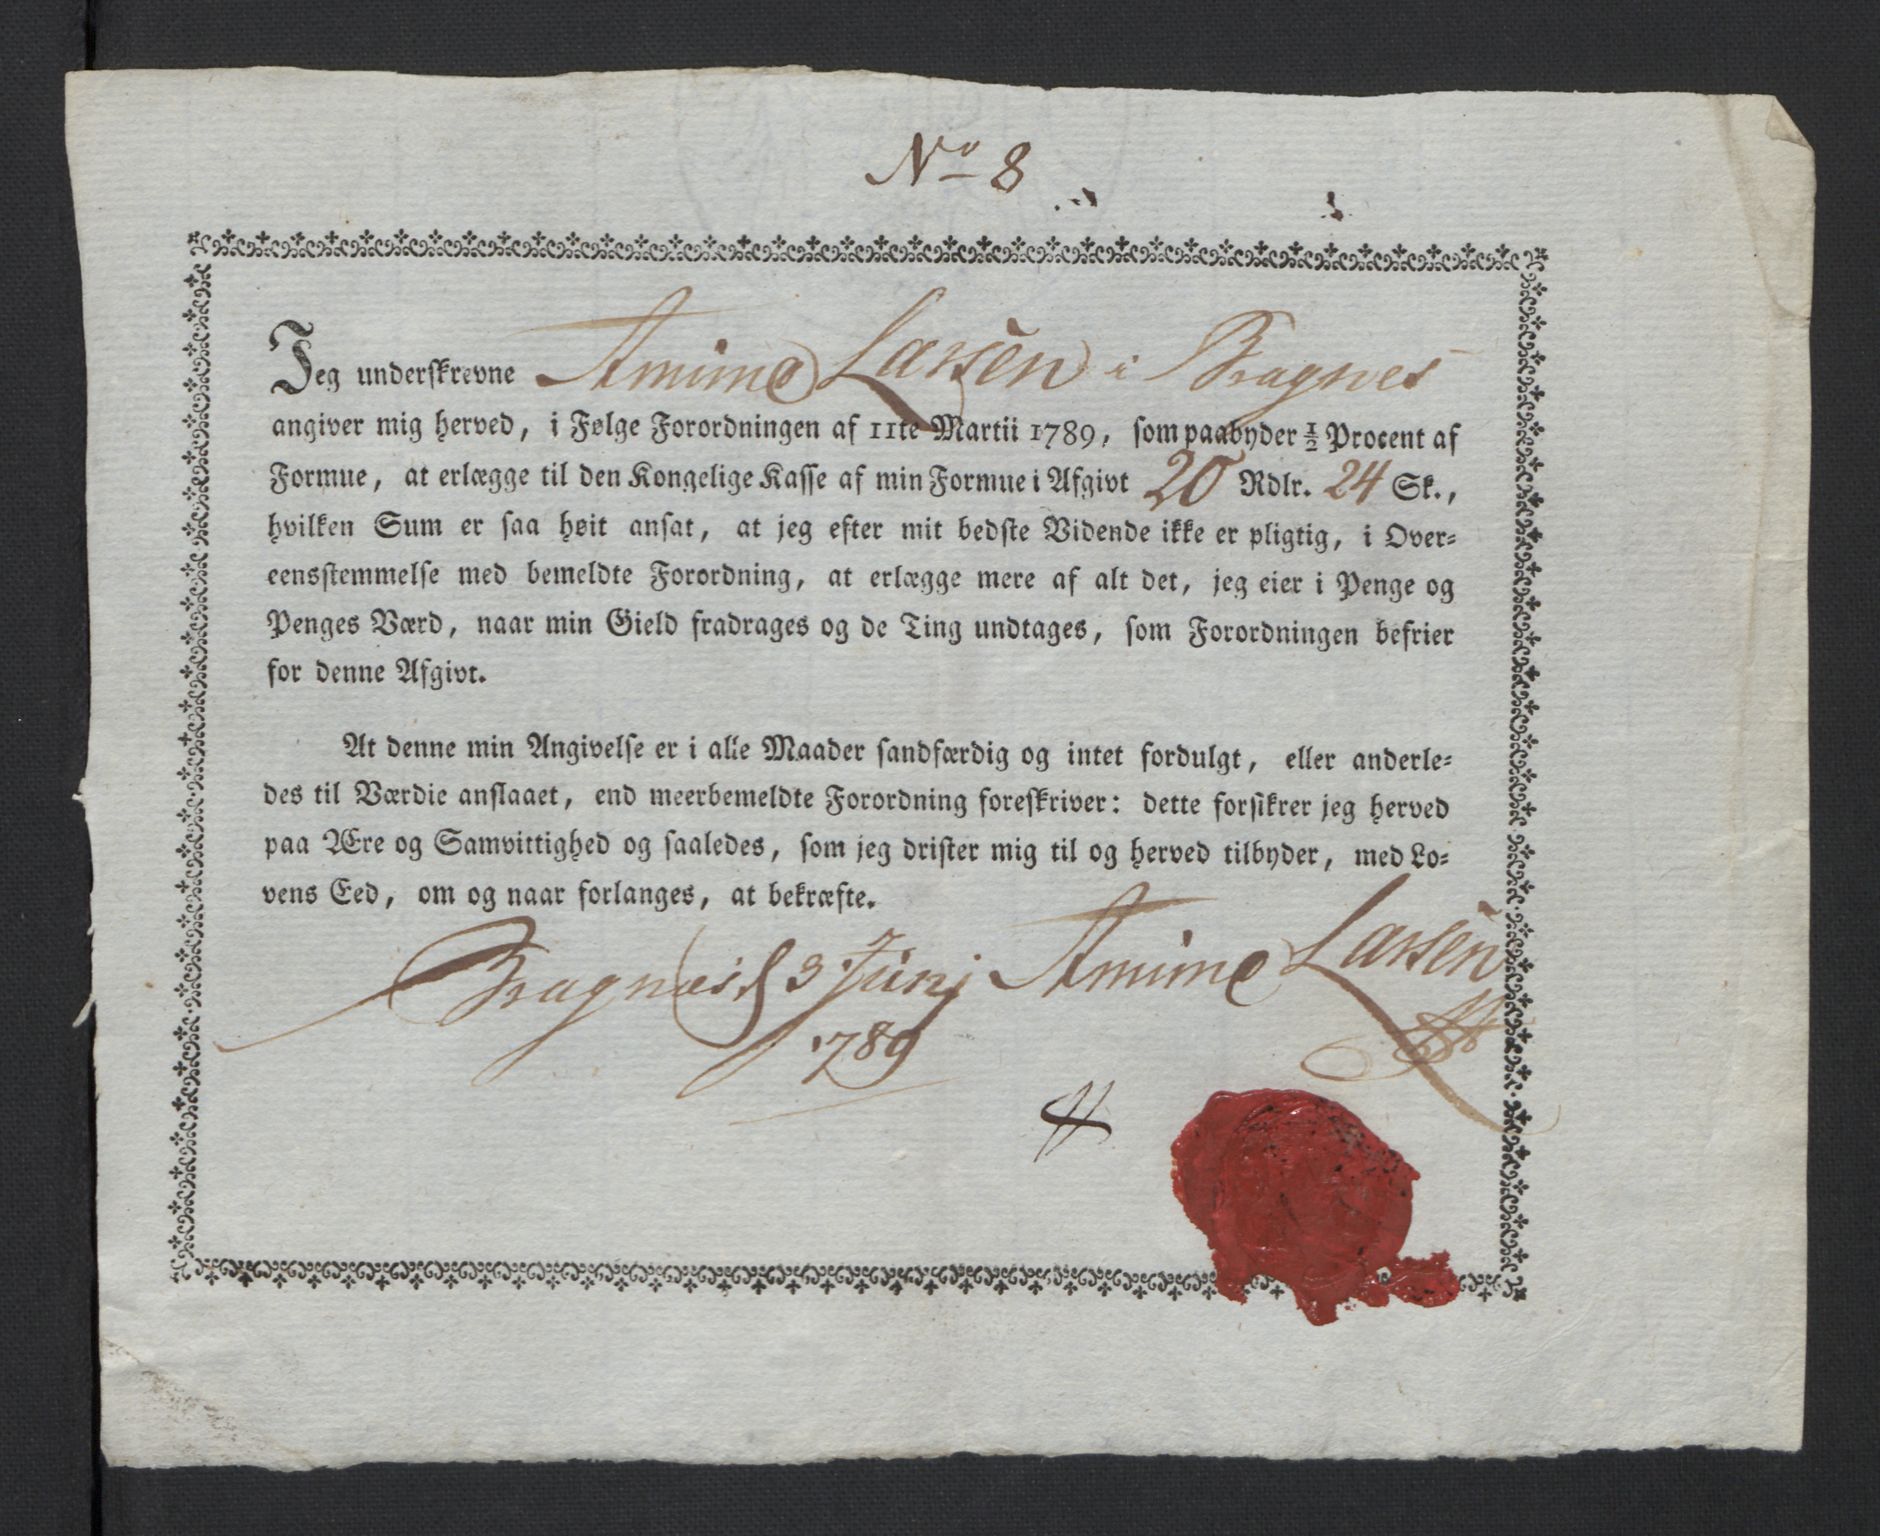 No 8
Jeg underskrevne Amimo Larsen i Bragnes
angiver mig herved, i Følge Forordningen af 11te Martii 1789, som paabyder ½ Procent af
Formue, at erlægge til den Kongelige Kasse af min Formue i Afgivt 20 Rdlr. 24 Sk.,
hvilken Sum er saa høit ansat, at jeg efter mit bedste Vidende ikke er pligtig, i Over-
eensstemmelse med bemeldte Forordning, at erlægge mere af alt det, jeg eier i Penge og
Penges Værd, naar min Gield fradrages og de Ting undtages, som Forordningen befrier
for denne Afgivt.
At denne min Angivelse er i alle Maader sandfærdig og intet fordulgt, eller anderle-
des til Værdie anslaaet, end meerbemeldte Forordning foreskriver: dette forsikrer jeg herved
paa Ære og Samvittighed og saaledes, som jeg drister mig til og herved tilbyder, med Lo-
vens Eed, om og naar forlanges, at bekræfte.
Bragnes d 3 Junj Amimo Larsen
1789